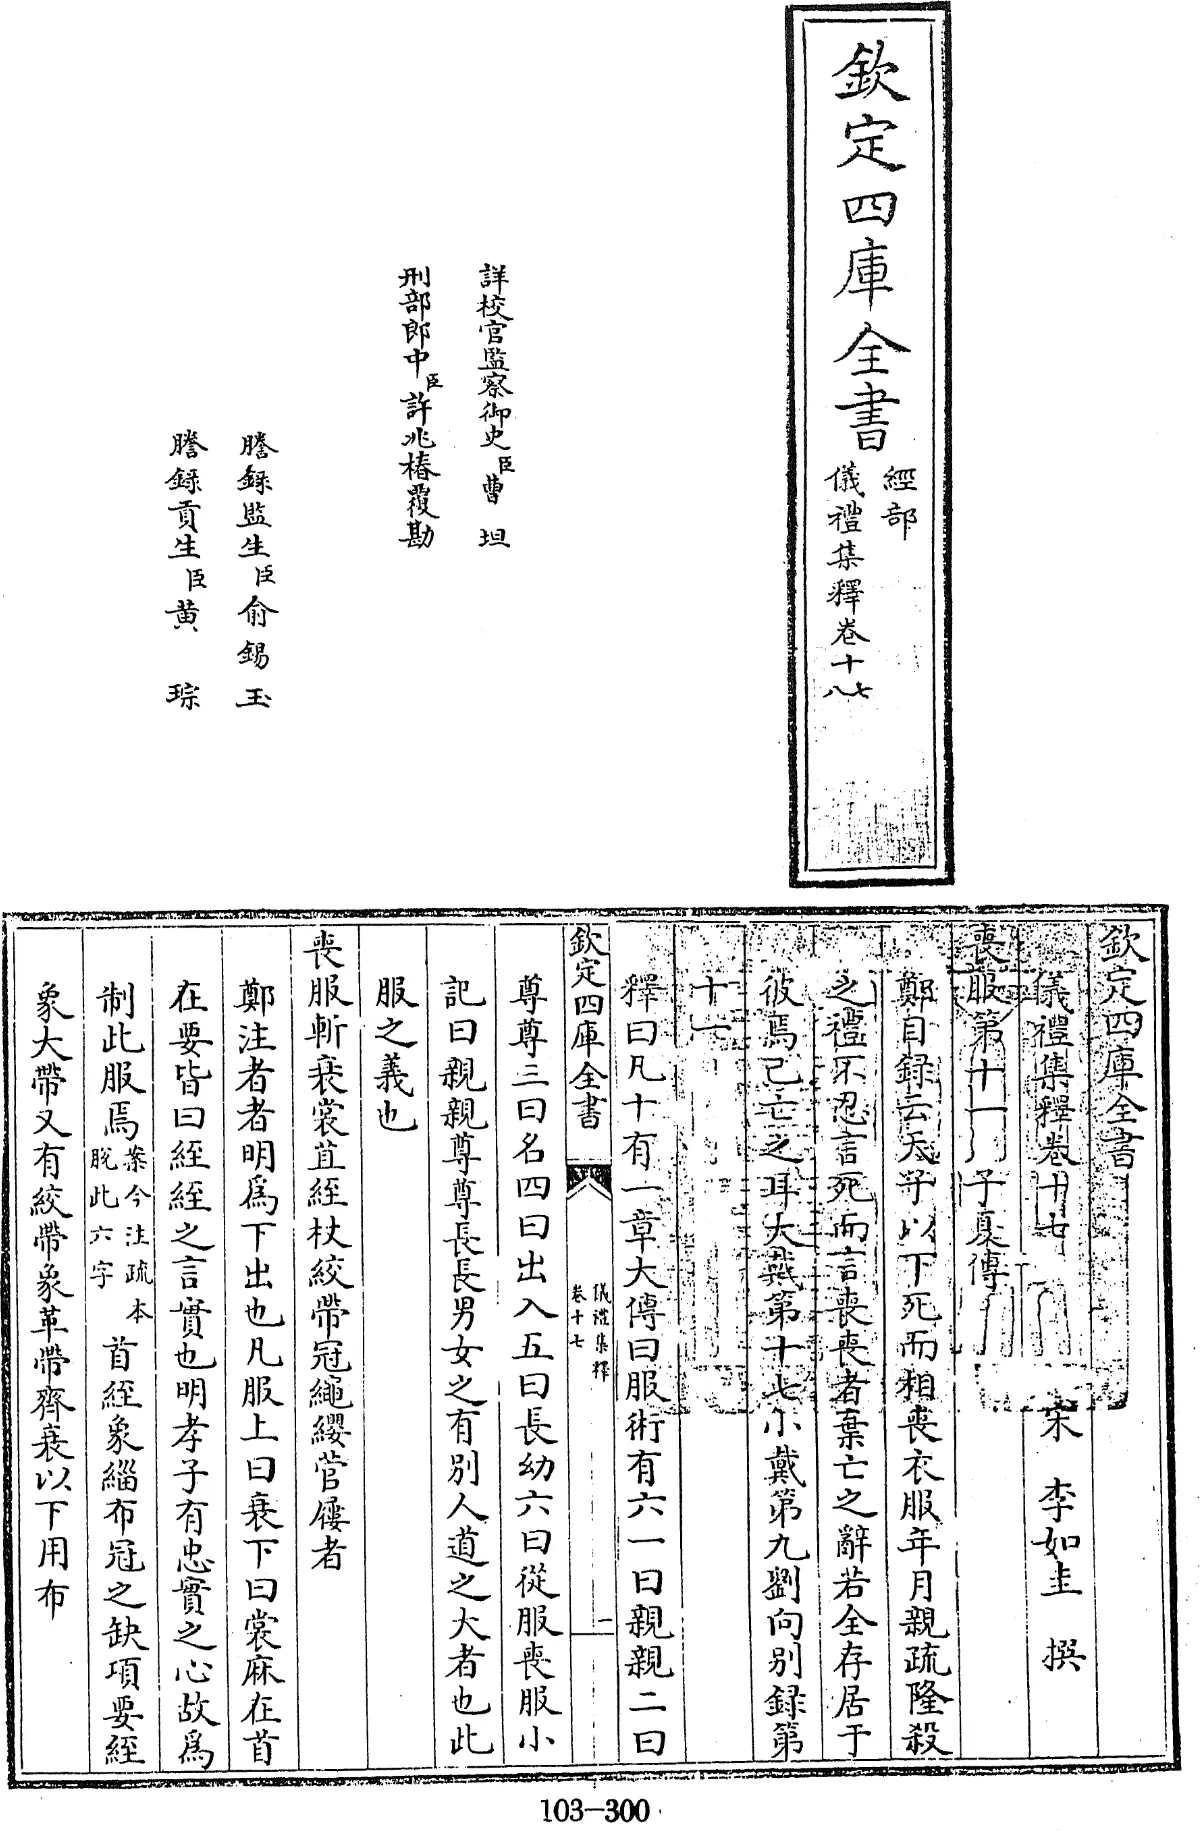 欽定四庫全書
經部
儀禮集釋卷十七
八
詳校官監察御史臣曹坦
刑部郎中臣許兆椿覆勘
謄錄監生臣俞錫玉
謄錄貢生臣黃琮
欽定四庫全書
儀禮集釋卷十七
宋 李如圭 撰
喪服第十一 子夏傳
鄭目録云天子以下死而相喪衣服年月親疏隆殺
之禮不忍言死而言喪喪者棄亡之辭若全存居于
彼焉已亡之耳大戴第十七小戴第九劉向别録第
十一
釋曰凡十有一章大傳曰服術有六一曰親親二曰
欽定四庫全書
儀禮集釋
卷十七
一
尊尊三曰名四曰出入五曰長幼六曰從服喪服小
記曰親親尊尊長長男女之有别人道之大者也此
服之義也
喪服斬衰裳苴絰杖絞帶冠繩纓菅屨者
鄭注者者明爲下出也凡服上曰衰下曰裳麻在首
在要皆曰絰絰之言實也明孝子有忠實之心故爲
制此服焉案今注疏本脫此六字首絰象緇布冠之缺項要絰
象大帶又有絞帶象革帶齊衰以下用布
103-300